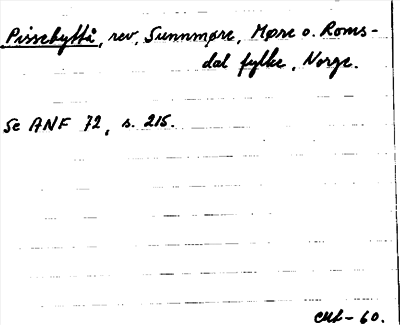 Pissebyttå, rev, Sunnmøre, Møre o. Roms-
dal fylke, Norge.
Se ANF 72, s. 215.
-60.